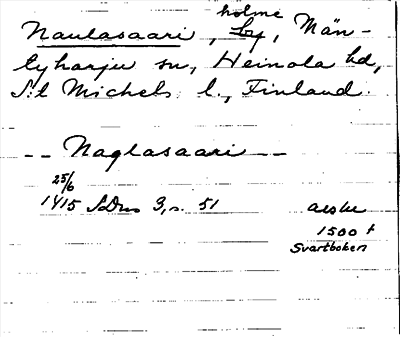 holme
Naulasaari, by, Män-
tyharju sn, Heinola hd,
S:t Michels l., Finland.
-- Naglasaari --
25/6
1415 SDns 3, s. 51
aeske
1500 t
Svartboken